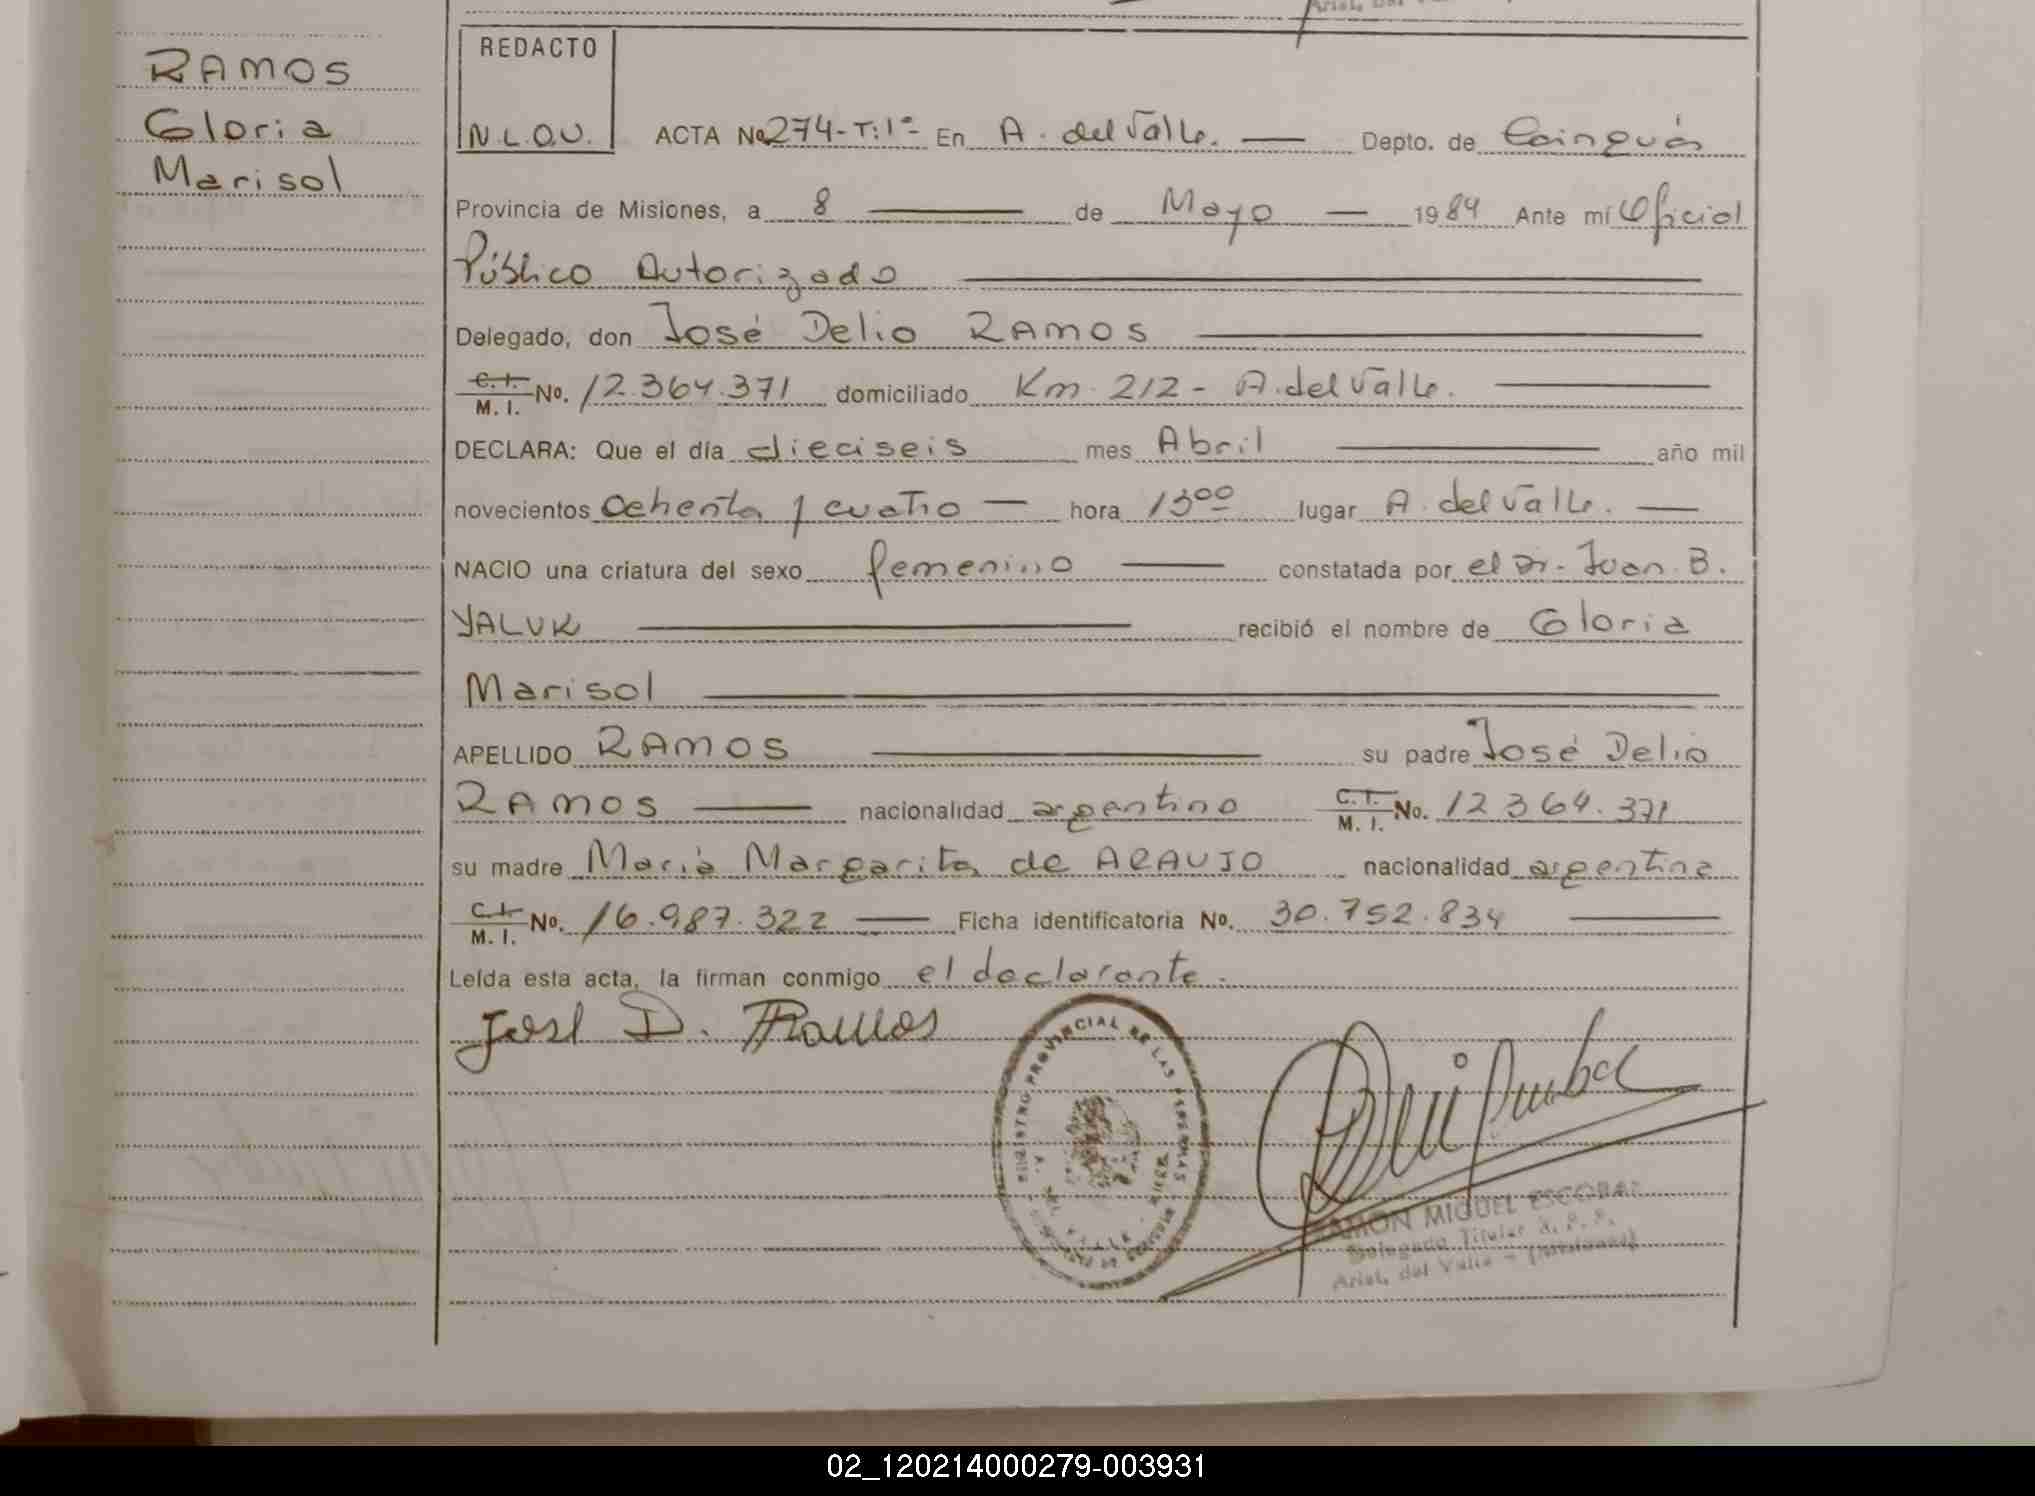 RAMOS
Gloria
Marisol
REDACTO
N.L.O.V.
ACTA No. 274-T:1º- En A. del Valle. — Depto. de Cainguás
Provincia de Misiones, a 8 — de Mayo — 1984 Ante mí Oficial
Público Autorizado
Delegado, don José Delio RAMOS
C.I. M.I. No. 12.364.371 domiciliado Km 212 - A. del Valle.
DECLARA: Que el día dieciseis mes Abril — año mil
novecientos ochenta y cuatro — hora 13ºº lugar A. del Valle. —
NACIO una criatura del sexo femenino — constatada por el Dr. Juan B.
YALUK — recibió el nombre de Gloria
Marisol
APELLIDO RAMOS — su padre José Delio
RAMOS — nacionalidad argentino C.I. M.I. No. 12.364.371
su madre María Margarita de ARAUJO nacionalidad argentina
C.I. M.I. No. 16.987.322 — Ficha identificatoria No. 30.752.834 —
Leída esta acta, la firman conmigo el declarante.
José D. Ramos
REGISTRO PROVINCIAL DE LAS PERSONAS
RAMON MIGUEL ESCOBAR
Delegado Titular R. P. P.
Arist. del Valle - (Misiones)
02_120214000279-003931